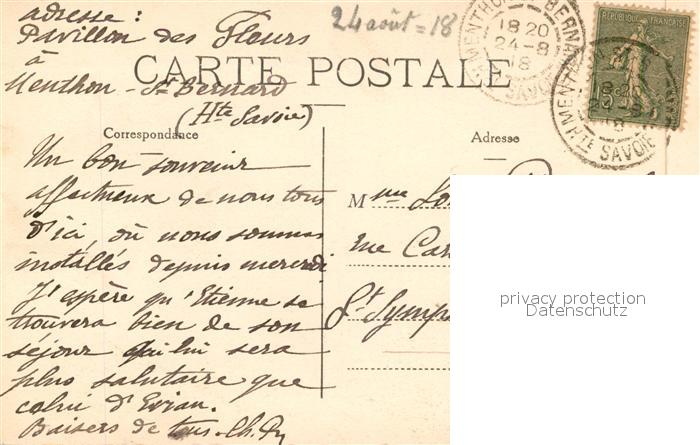 adresse :
Pavillon des Fleurs
à
Menthon - St Bernard
(Hte Savoie)
24 août = 18
CARTE POSTALE
MENTHON BERNARD
18 20
24-8
18
SAVOIE
RÉPUBLIQUE FRANÇAISE
15c
MENTHON
18 20
18
HTE SAVOIE
Correspondance
Adresse
Un bon souvenir
affectueux de nous tous
d'ici, où nous sommes
installés depuis mercredi
J'espère qu'Etienne se
trouvera bien de son
séjour qui lui sera
plus salutaire que
celui d'Evian.
Baisers de tous. Ch.
Mme
rue
St
privacy protection
Datenschutz